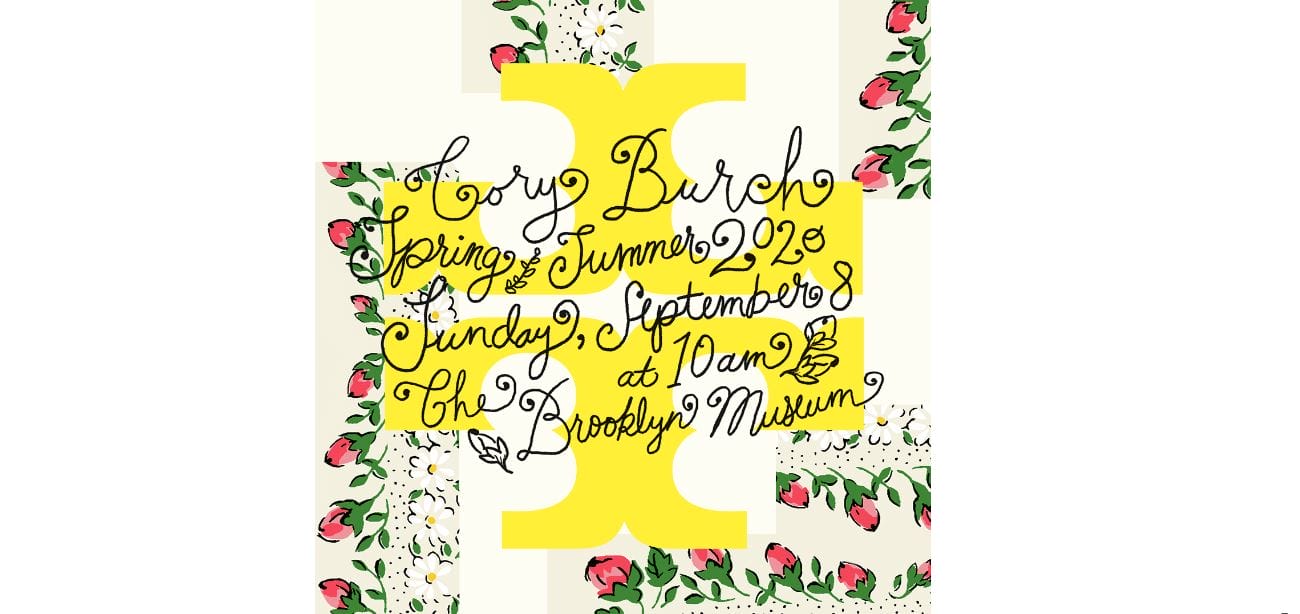 Tory Burch
Spring Summer 2020
Sunday, September 8
at 10am
The Brooklyn Museum